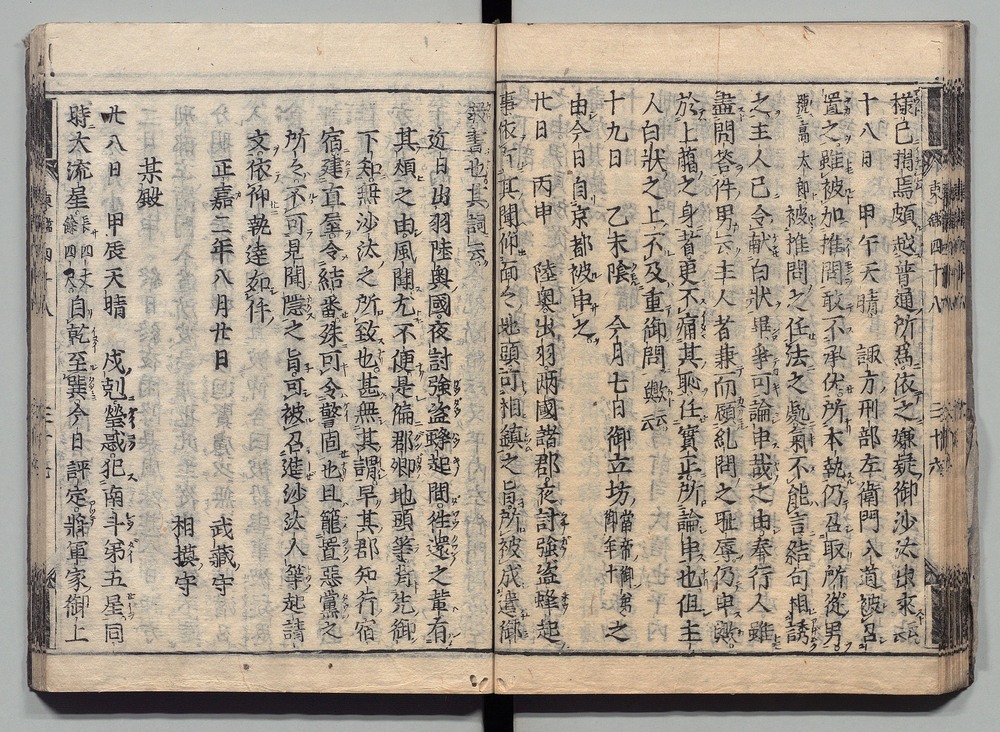 様已揖焉頗越普通所為依之嫌疑御沙汰出来云云
十八日　甲午天晴　諏方刑部左衛門入道被召
置之雖被加推問敢不承伏所本執仍召取所従男
号高太郎被推問之任法之処気不能言結句相誘
之主人已令献白状畢争可論申哉之由奉行人雖
尽問答件男云主人者兼而願糺問之耻辱仍申歟
於上臈之身者更不痛其恥任実正所論申也但主
人白状之上不及重御問歟云云
十九日　乙未陰　今月七日御立坊当帝御弟御年十之
由今日自京都被申之
廿日　丙申　陸奥出羽両国諸郡夜討強盗蜂起
事依所其聞仰面々地頭可相鎮之旨所被成遣御
教書也其詞云
近日出羽陸奥国夜討強盗蜂起間往還之輩有
其煩之由風聞尤不便是偏郡郷地頭等背先御
下知無沙汰之所致也甚無其謂早其郡知行宿
宿建直屋令結番殊可令警固也且籠置悪党之
所々不可見聞隠之旨可被召進沙汰人等起請
文依仰執達如件
正嘉二年八月廿日　武蔵守
相摸守
某殿
廿八日　甲辰天晴　戌剋螢惑犯南斗第五星同
時大流星長四丈餘四尺自乾至巽今日評定将軍家御上
東鑑四十八
三十六
東鑑四十八